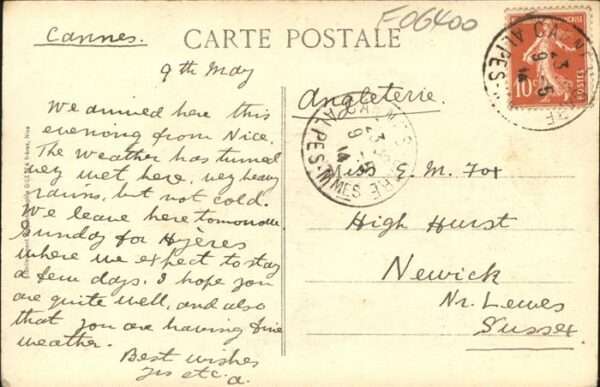 Cannes.
F06400
CARTE POSTALE
9th May
We arrived here this
evening from Nice.
The weather has turned
very wet here, very heavy
rains, but not cold.
We leave here tomorrow
Sunday for Hyères
where we expect to stay
a few days. I hope you
are quite well, and also
that you are having fine
weather.
Best wishes
yrs etc. a.
Angleterie.
Miss E. M. Fox
High Hurst
Newick
Nr. Lewes
Sussex
10
POSTES
CANNES
ALPES-MMES
23
9 - 5
14